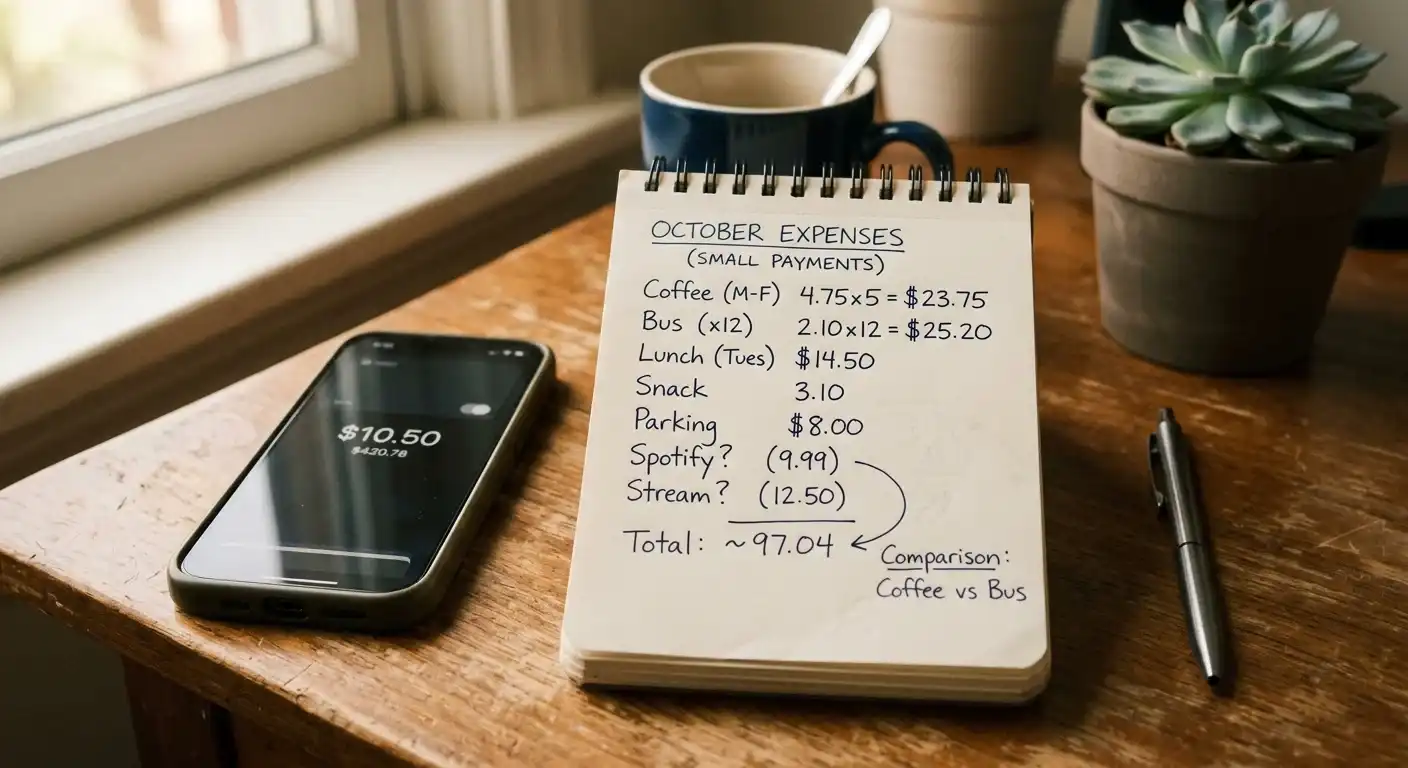 OCTOBER EXPENSES
(SMALL PAYMENTS)
Coffee (M-F) 4.75x5 = $23.75
Bus (x12) 2.10x12 = $25.20
Lunch (Tues) $14.50
Snack 3.10
Parking $8.00
Spotify? (9.99)
Stream? (12.50)
Total: ~97.04
Comparison:
Coffee vs Bus
$10.50